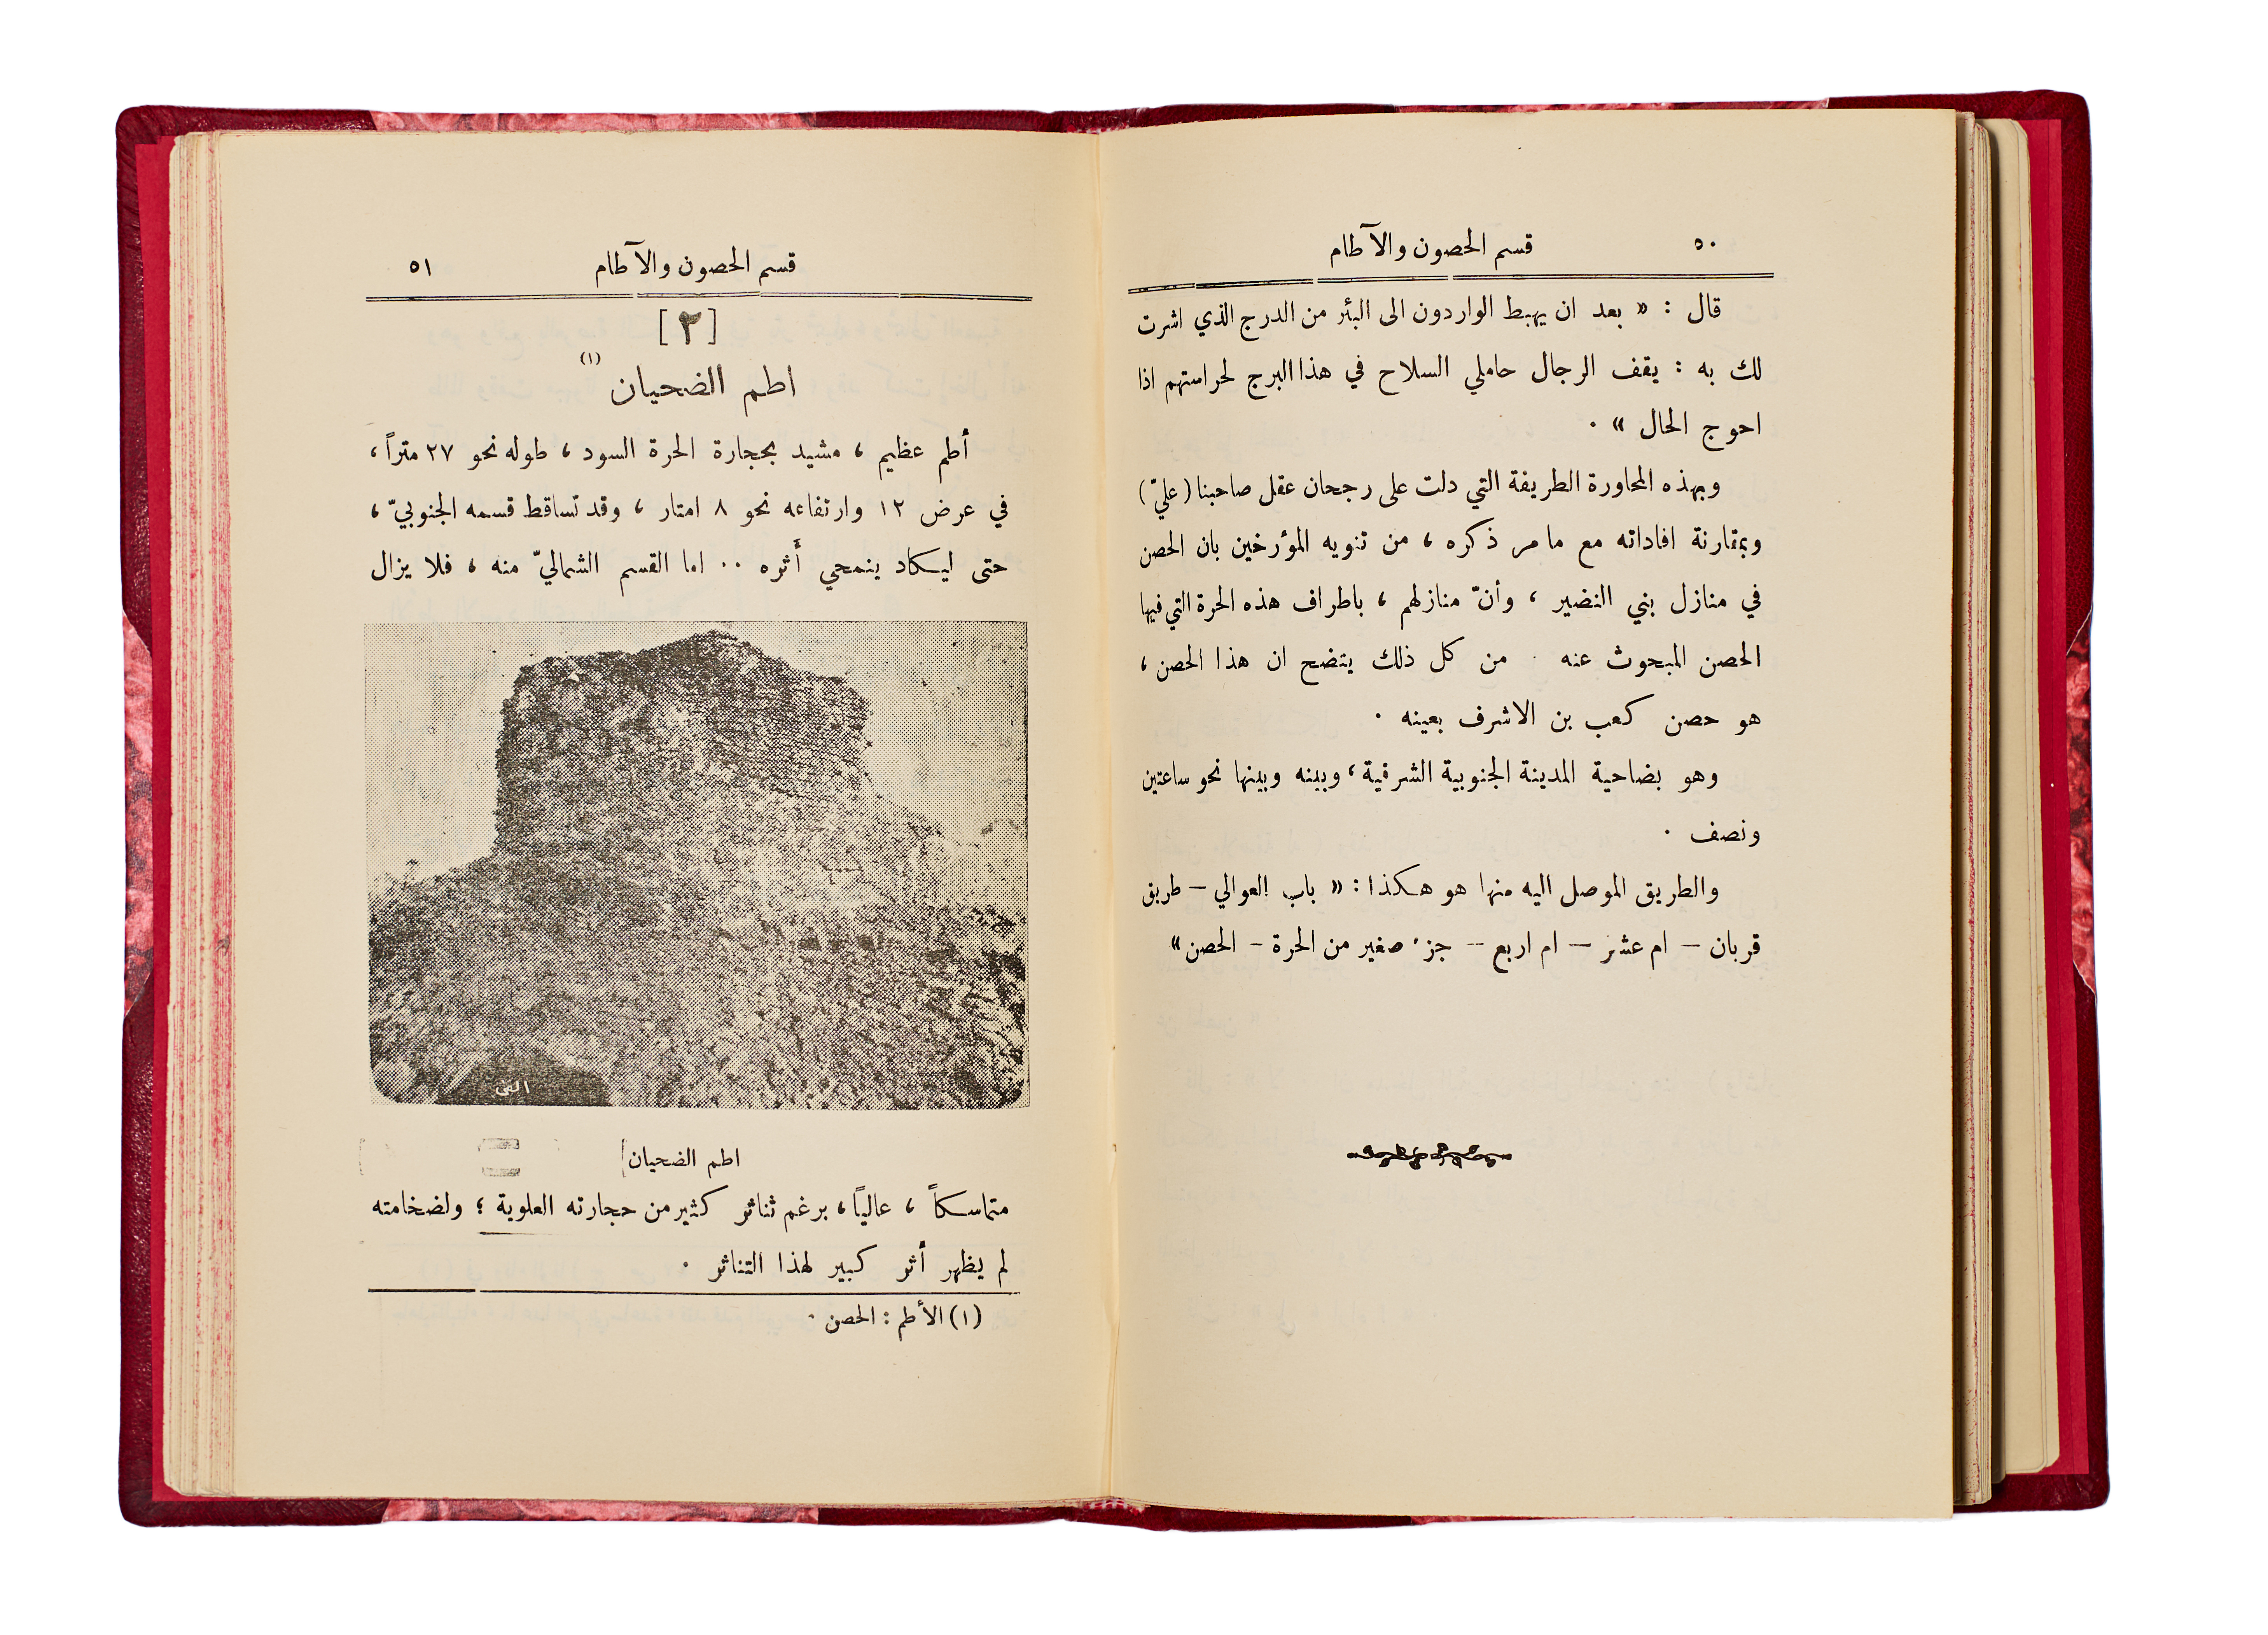 ٥٠
قسم الحصون والآطام
قال : « بعد ان يهبط الواردون الى البئر من الدرج الذي اشرت
لك به : يقف الرجال حاملي السلاح في هذا البرج لحراستهم اذا
احوج الحال » .
وبهذه المحاورة الطريفة التي دلت على رجحان عقل صاحبنا (عليّ)
وبمقارنة افاداته مع ما مر ذكره ، من تنويه المؤرخين بان الحصن
في منازل بني النضير ، وأنّ منازلهم ، باطراف هذه الحرة التي فيها
الحصن المبحوث عنه . من كل ذلك يتضح ان هذا الحصن ،
هو حصن كعب بن الاشرف بعينه .
وهو بضاحية المدينة الجنوبية الشرقية ، وبينه وبينها نحو ساعتين
ونصف .
والطريق الموصل اليه منها هو هكذا : « باب العوالي – طريق
قربان – ام عشر – ام اربع – جزء صغير من الحرة – الحصن »
قسم الحصون والآطام
٥١
[٢]
اطم الضحيان (١)
أطم عظيم ، مشيد بحجارة الحرة السود ، طوله نحو ٢٧ متراً ،
في عرض ١٢ وارتفاعه نحو ٨ امتار ، وقد تساقط قسمه الجنوبيّ ،
حتى ليكاد ينمحي أثره .. اما القسم الشماليّ منه ، فلا يزال
اطم الضحيان
متماسكاً ، عالياً ، برغم تناثر كثير من حجارته العلوية ؛ ولضخامته
لم يظهر أثر كبير لهذا التناثر .
(١) الأطم : الحصن .